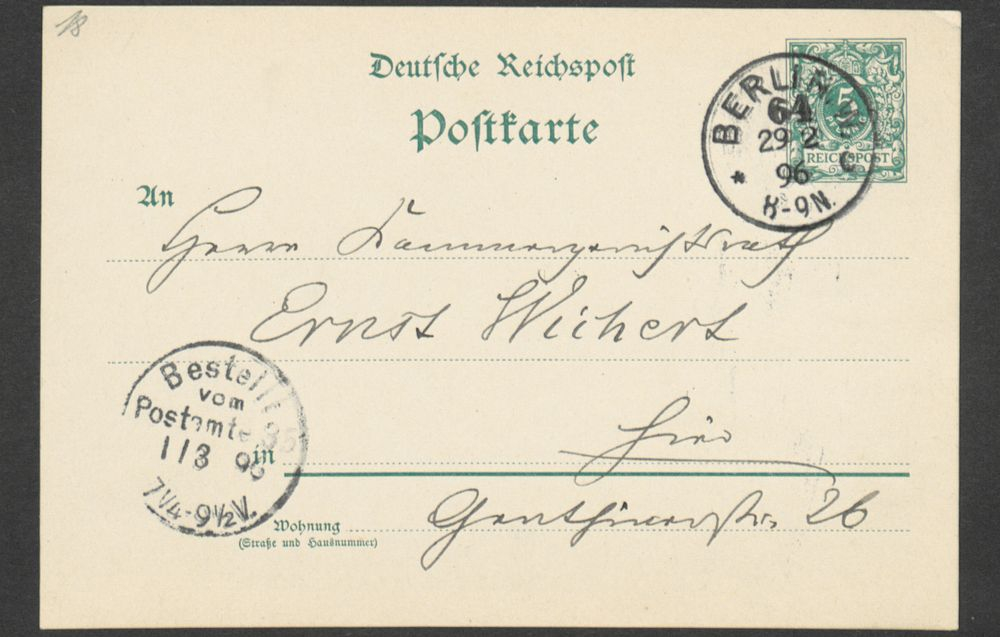 18
Deutsche Reichspost
Postkarte
5
REICHSPOST
BERLIN
64
29 2
96
* C
8-9N.
An
Herrn Kammergerichtsrath
Ernst Wichert
Bestellt
vom
Postamte 35
1/3 96
7¼-9½V.
in
Hier
Wohnung
(Straße und Hausnummer)
Genthinerstr. 26